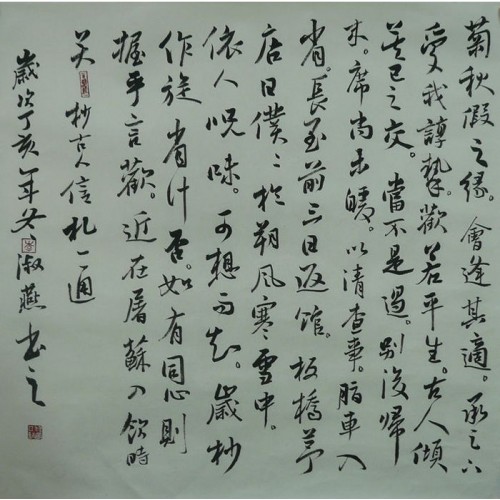 菊秋假之缘。會逢其適。承之六
受我諄摯。歡若平生。古人傾
盖已之交。當不是過。别後歸
来。席尚未暖。以清查事。脂車入
省。長至前三日返馆。板橋茅
店日僕〻於朔風寒雪中。
依人况味。可想而知。歲杪
作旋省计否。如有同心則
握手言歡。近在屠蘇入飲時
矣 抄古人信札一通
歲次丁亥年冬 淑燕書之